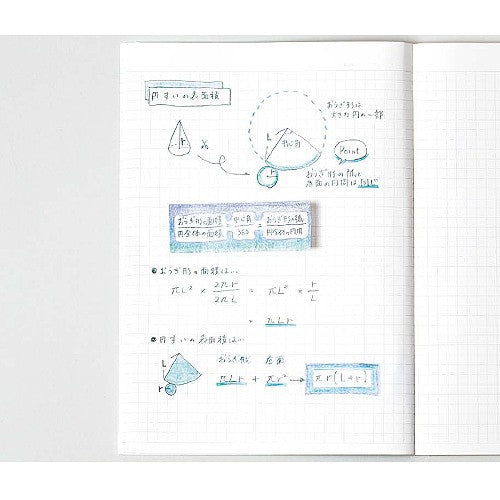 円すいの表面積
おうぎ形は
大きな円の一部
L
中心角
r
Point
おうぎ形の弧と
底面の円周は同じ
おうぎ形の面積/円全体の面積 = 中心角/360 = おうぎ形の弧/円全体の円周
●おうぎ形の面積は…
πL² × 2πr/2πL = πL² × r/L
= πLr
●円すいの表面積は…
おうぎ形 底面
L
r
πLr + πr² → πr(L+r)